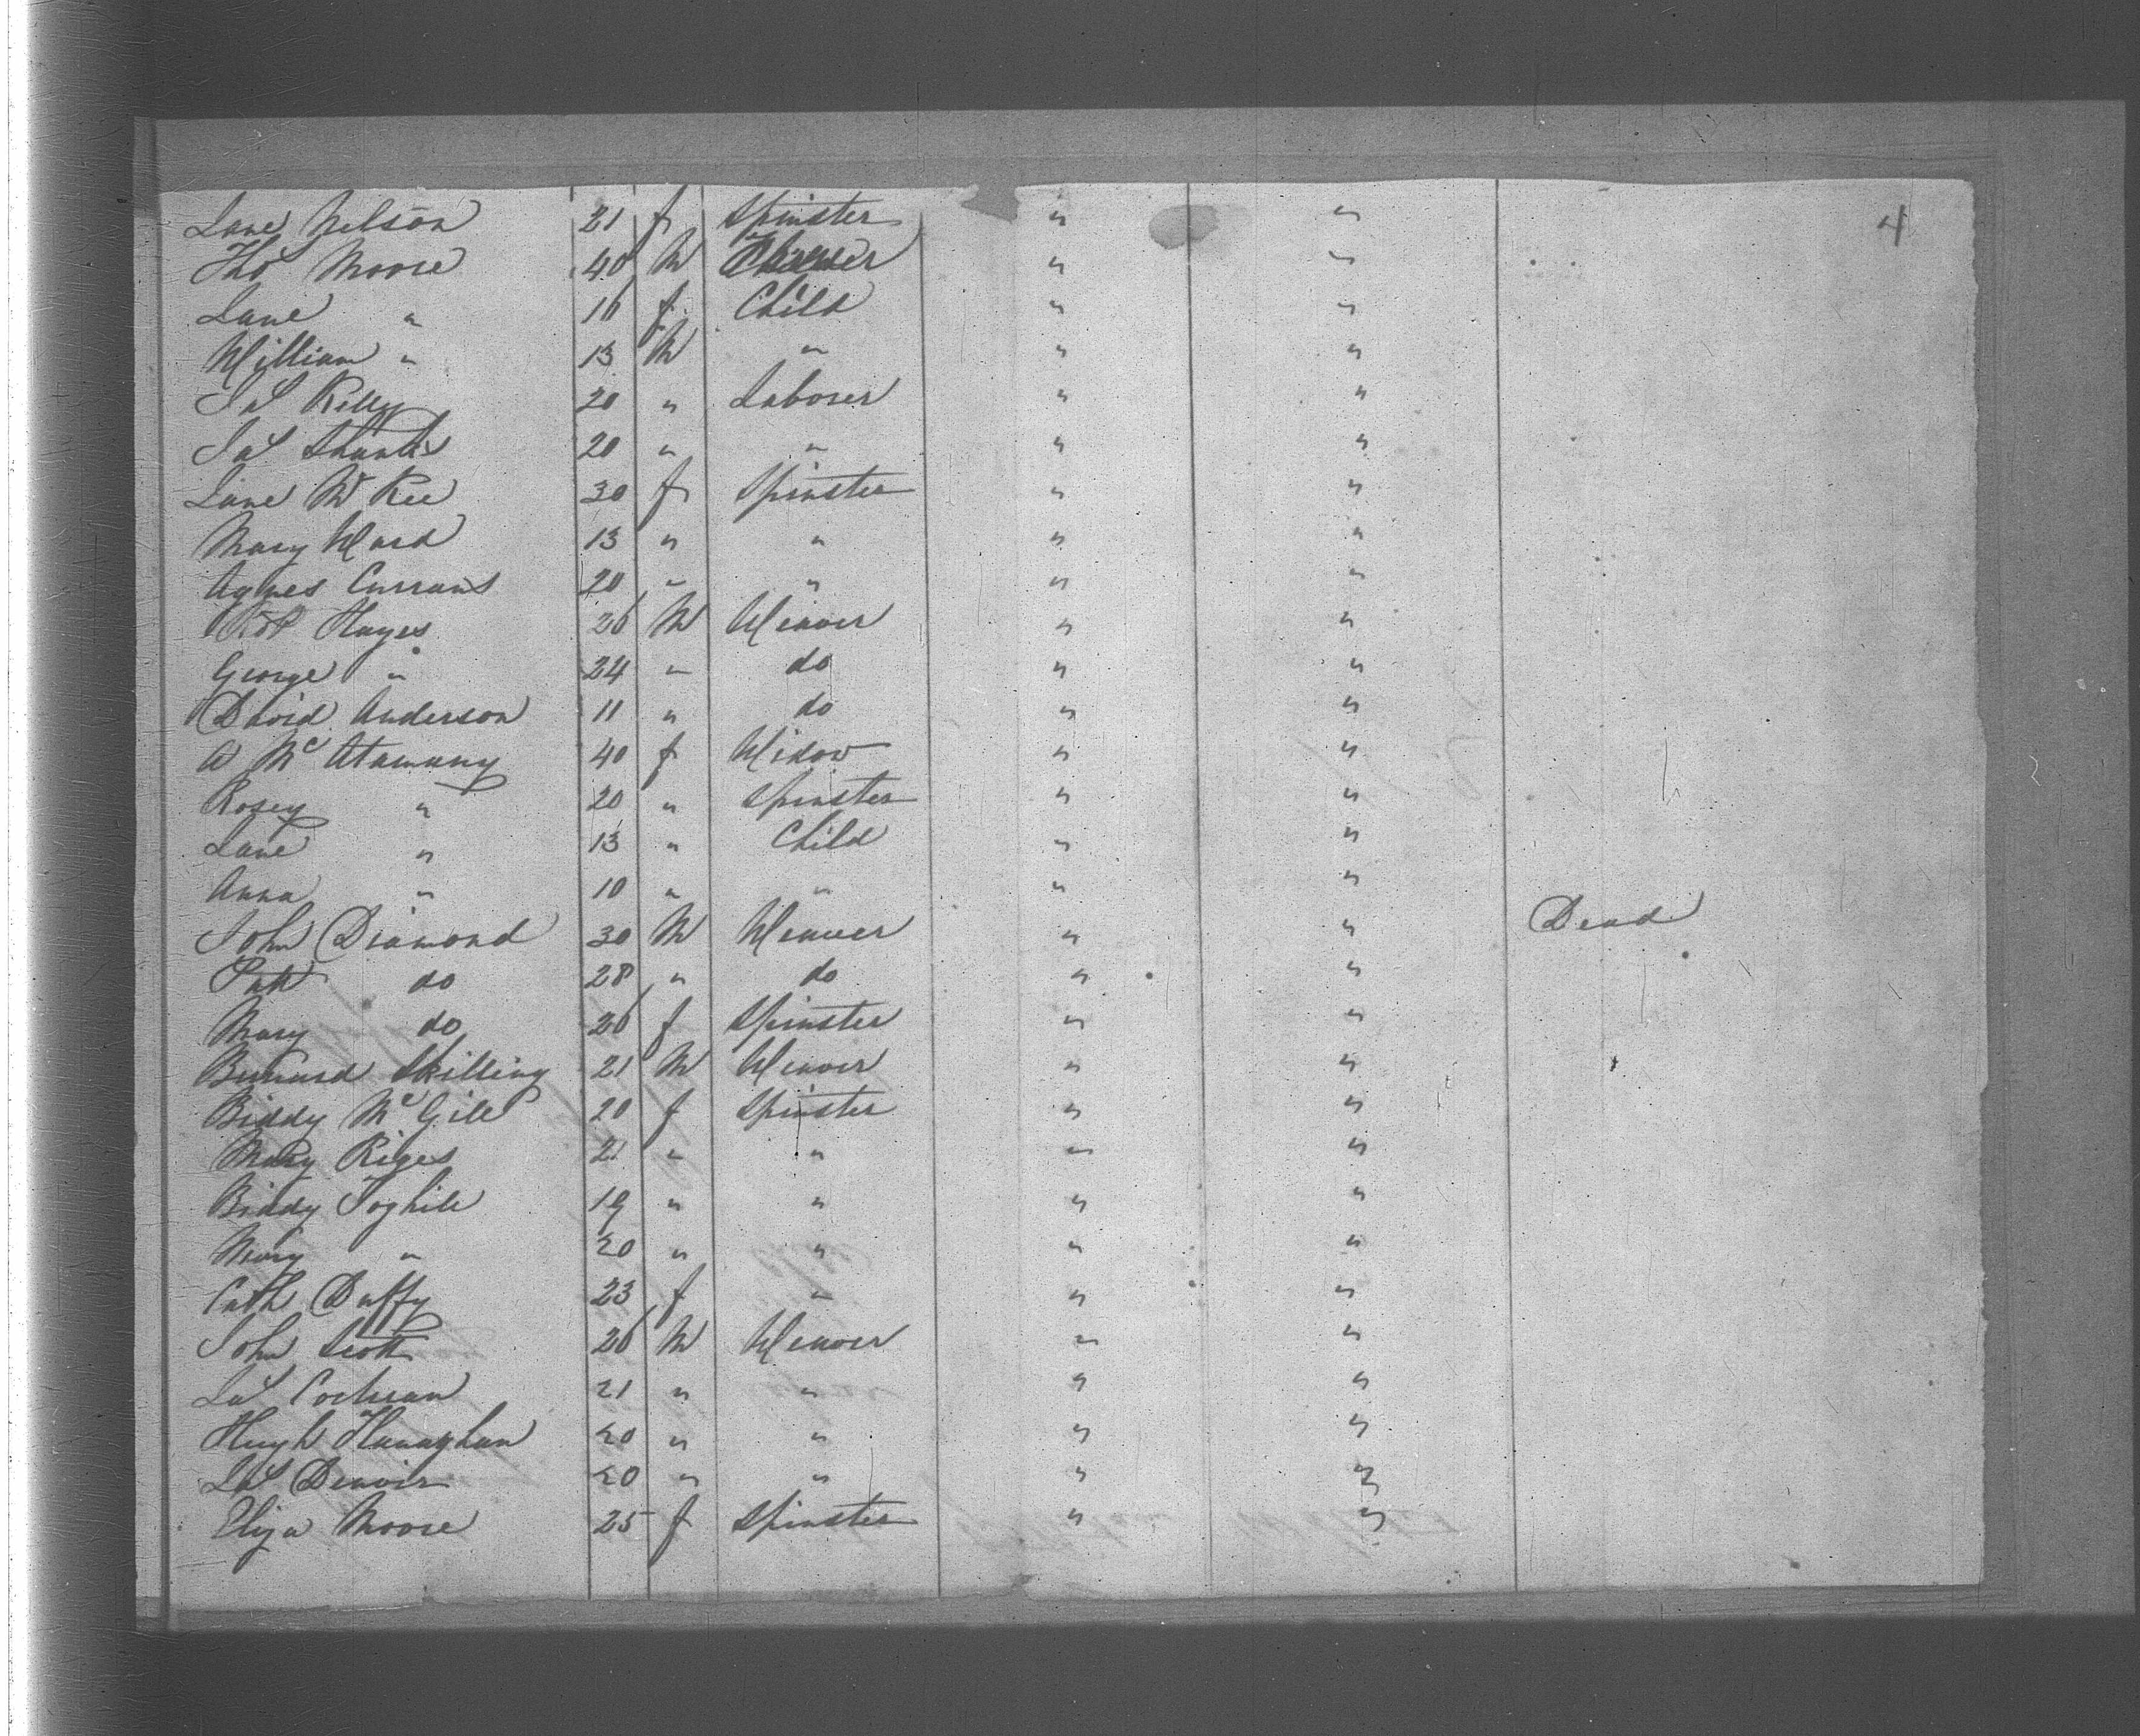 4
Jane Nelson 21 f Spinster " "
Tho Moore 40 M " "
Jane " 16 f Child " "
William " 13 M " " "
Jas Kelly 20 " Laborer " "
Jas 20 " " " "
Jane McKee 30 f Spinster " "
Mary Ward 13 " " " "
Agnes Currans 20 " " " "
Robt Hayes 26 M Weaver " "
George " 24 " do " "
David Anderson 11 " do " "
A McAtamany 40 f Widow " "
Rosey " 20 " Spinster " "
Jane " 13 " Child " "
Anna " 10 " " " "
John Diamond 30 M Weaver " " Dead
Patk do 28 " do " "
Mary do 26 f Spinster " "
Bernard Skilling 21 M Weaver " "
Biddy McGill 20 f Spinster " "
Mary 21 " " " "
Biddy Toghill 19 " " " "
Mary " 20 " " " "
Cath Duffy 23 f " " "
John Scott 26 M Weaver " "
Jas Cochran 21 " " " "
Hugh Hanaghan 20 " " " "
Jas Denvir 20 " " " "
Eliza Moore 25 f Spinster " "